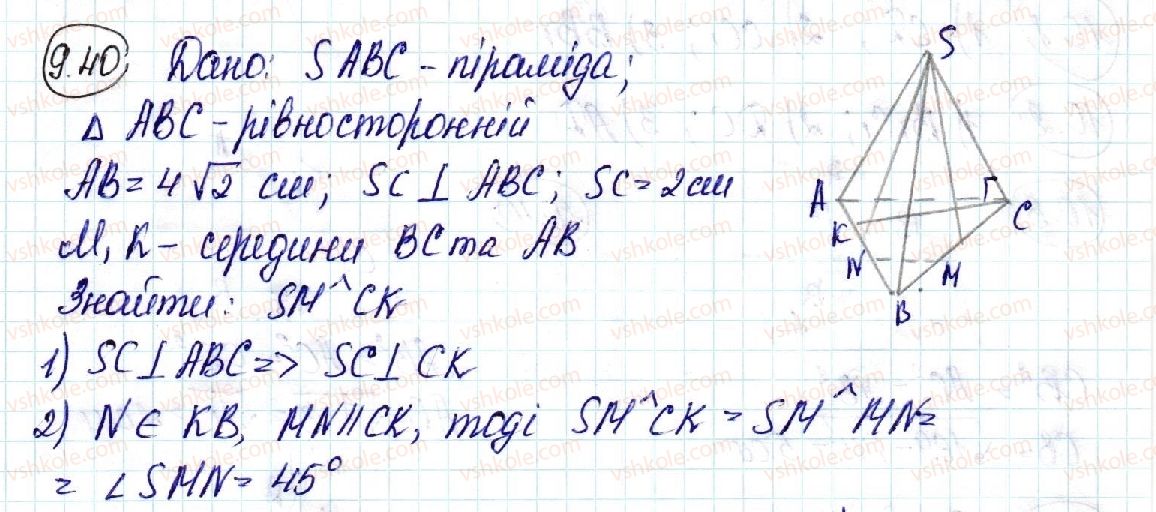 9.40 Дано: SABC – піраміда;
Δ ABC – рівносторонній
AB = 4√2 см; SC ⊥ ABC; SC = 2 см
M, K – середини BC та AB
Знайти: SM ^ CK
1) SC ⊥ ABC => SC ⊥ CK
2) N ∈ KB, MN || CK, тоді SM ^ CK = SM ^ MN =
= ∠ SMN = 45°
S
A
C
K
N
M
B
vshkole.com